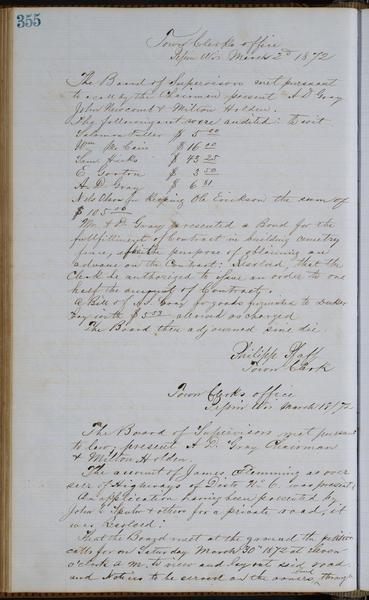 355
Town Clerks office
Pepin Wis March 2d 1872
The Board of Supervisors met pursuant
to a call by the Chairman present A D Gray
John Newcomb & Milton Holden.
The following acct were audited: To wit
Solomon Fuller $ 5 00
Wm McCain $ 16 00
Sam Hicks $ 43 25
E Gorton $ 3 50
A. D. Gray $ 6 81
Nels Olson for keeping Ole Erickson the sum of
$ 105 00
Mr A D. Gray presented a Bond for the
fullfillment of Contract in building cemetry
fence, for the purpose of obtaining an
advance on the Contract: Resolved, that the
Clerk be authorized to issue an order to one
half the amount of Contract.
A Bill of Gray for goods furnished to
$ 5 allowed as charged
The Board then adjourned sine die.
Philipp Pfaff
Town Clerk
Town Clerks office
Pepin Wis March 18/72
The Board of Supervisors met pursuant
to law, present A. D. Gray Chairman
& Milton Holden.
The account of James Flemming as over
seer of Highways of Distr No 6 was present,
An application having been presented by
John & others for a private road, it
was Resolved:
That the Board meet at the ground the petition
calls for on Saturday March 30th 1872 at eleven
o'clock A M. to view and lay out said road
and Notices to be served on the owners through